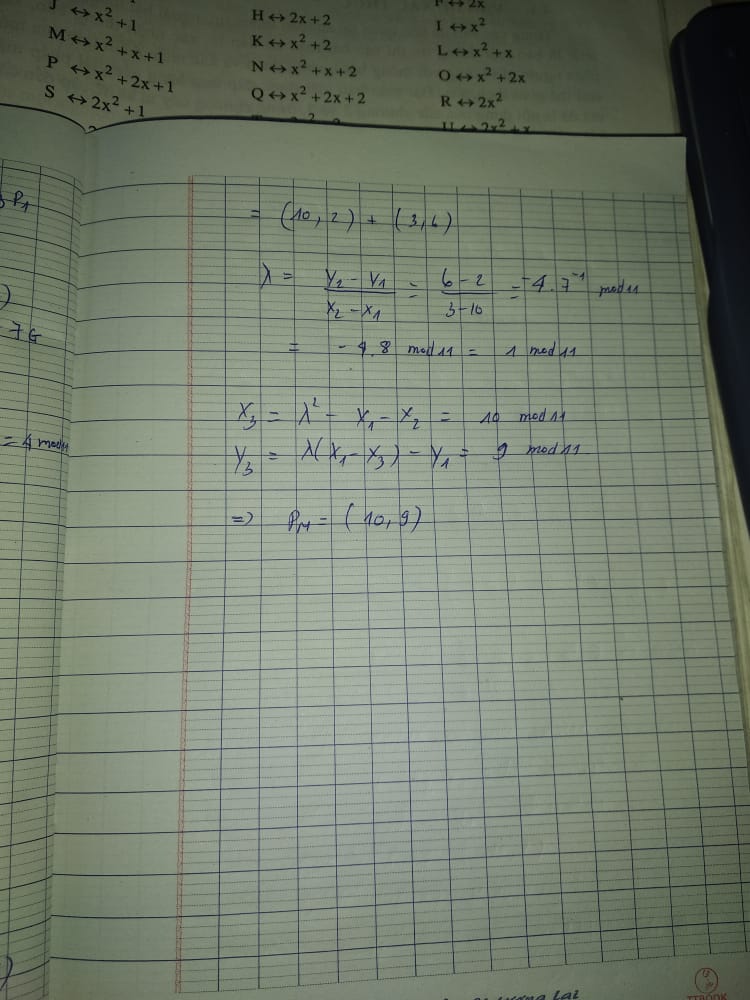 J ↔ x² + 1
M ↔ x² + x + 1
P ↔ x² + 2x + 1
S ↔ 2x² + 1
H ↔ 2x + 2
K ↔ x² + 2
N ↔ x² + x + 2
Q ↔ x² + 2x + 2
F ↔ 2x
I ↔ x²
L ↔ x² + x
O ↔ x² + 2x
R ↔ 2x²
U ↔ 2x² + x
P₁
)
7G
= 4 mod 11
= (10, 2) + (3, 6)
λ = (y₂ - y₁)/(x₂ - x₁) = (6 - 2)/(3 - 10) = -4 . 7⁻¹ mod 11
= - 4.8 mod 11 = 1 mod 11
x₃ = λ² - x₁ - x₂ = 10 mod 11
y₃ = λ(x₁ - x₃) - y₁ = 9 mod 11
=> P_M = (10, 9)